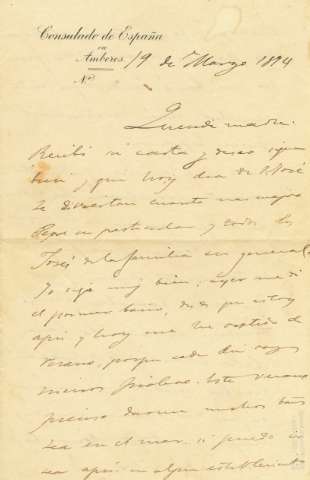 Consulado de España
en
Amberes
Nº
19 de Marzo 1894
Querida madre:
Recibí su carta y deseo sigan
bien y que hoy dia de S. José
se diviertan cuanto
Pepe en particular y todos los
Josés de la familia en general.
Yo sigo muy bien, ayer me di
el primer baño, desde que estoy
aquí y hoy me he vestido de
verano, porque cada dia soy
menos friolero. Este verano
pienso darme muchos baños
sea en el mar si puedo o
sea aquí en algun establecimiento